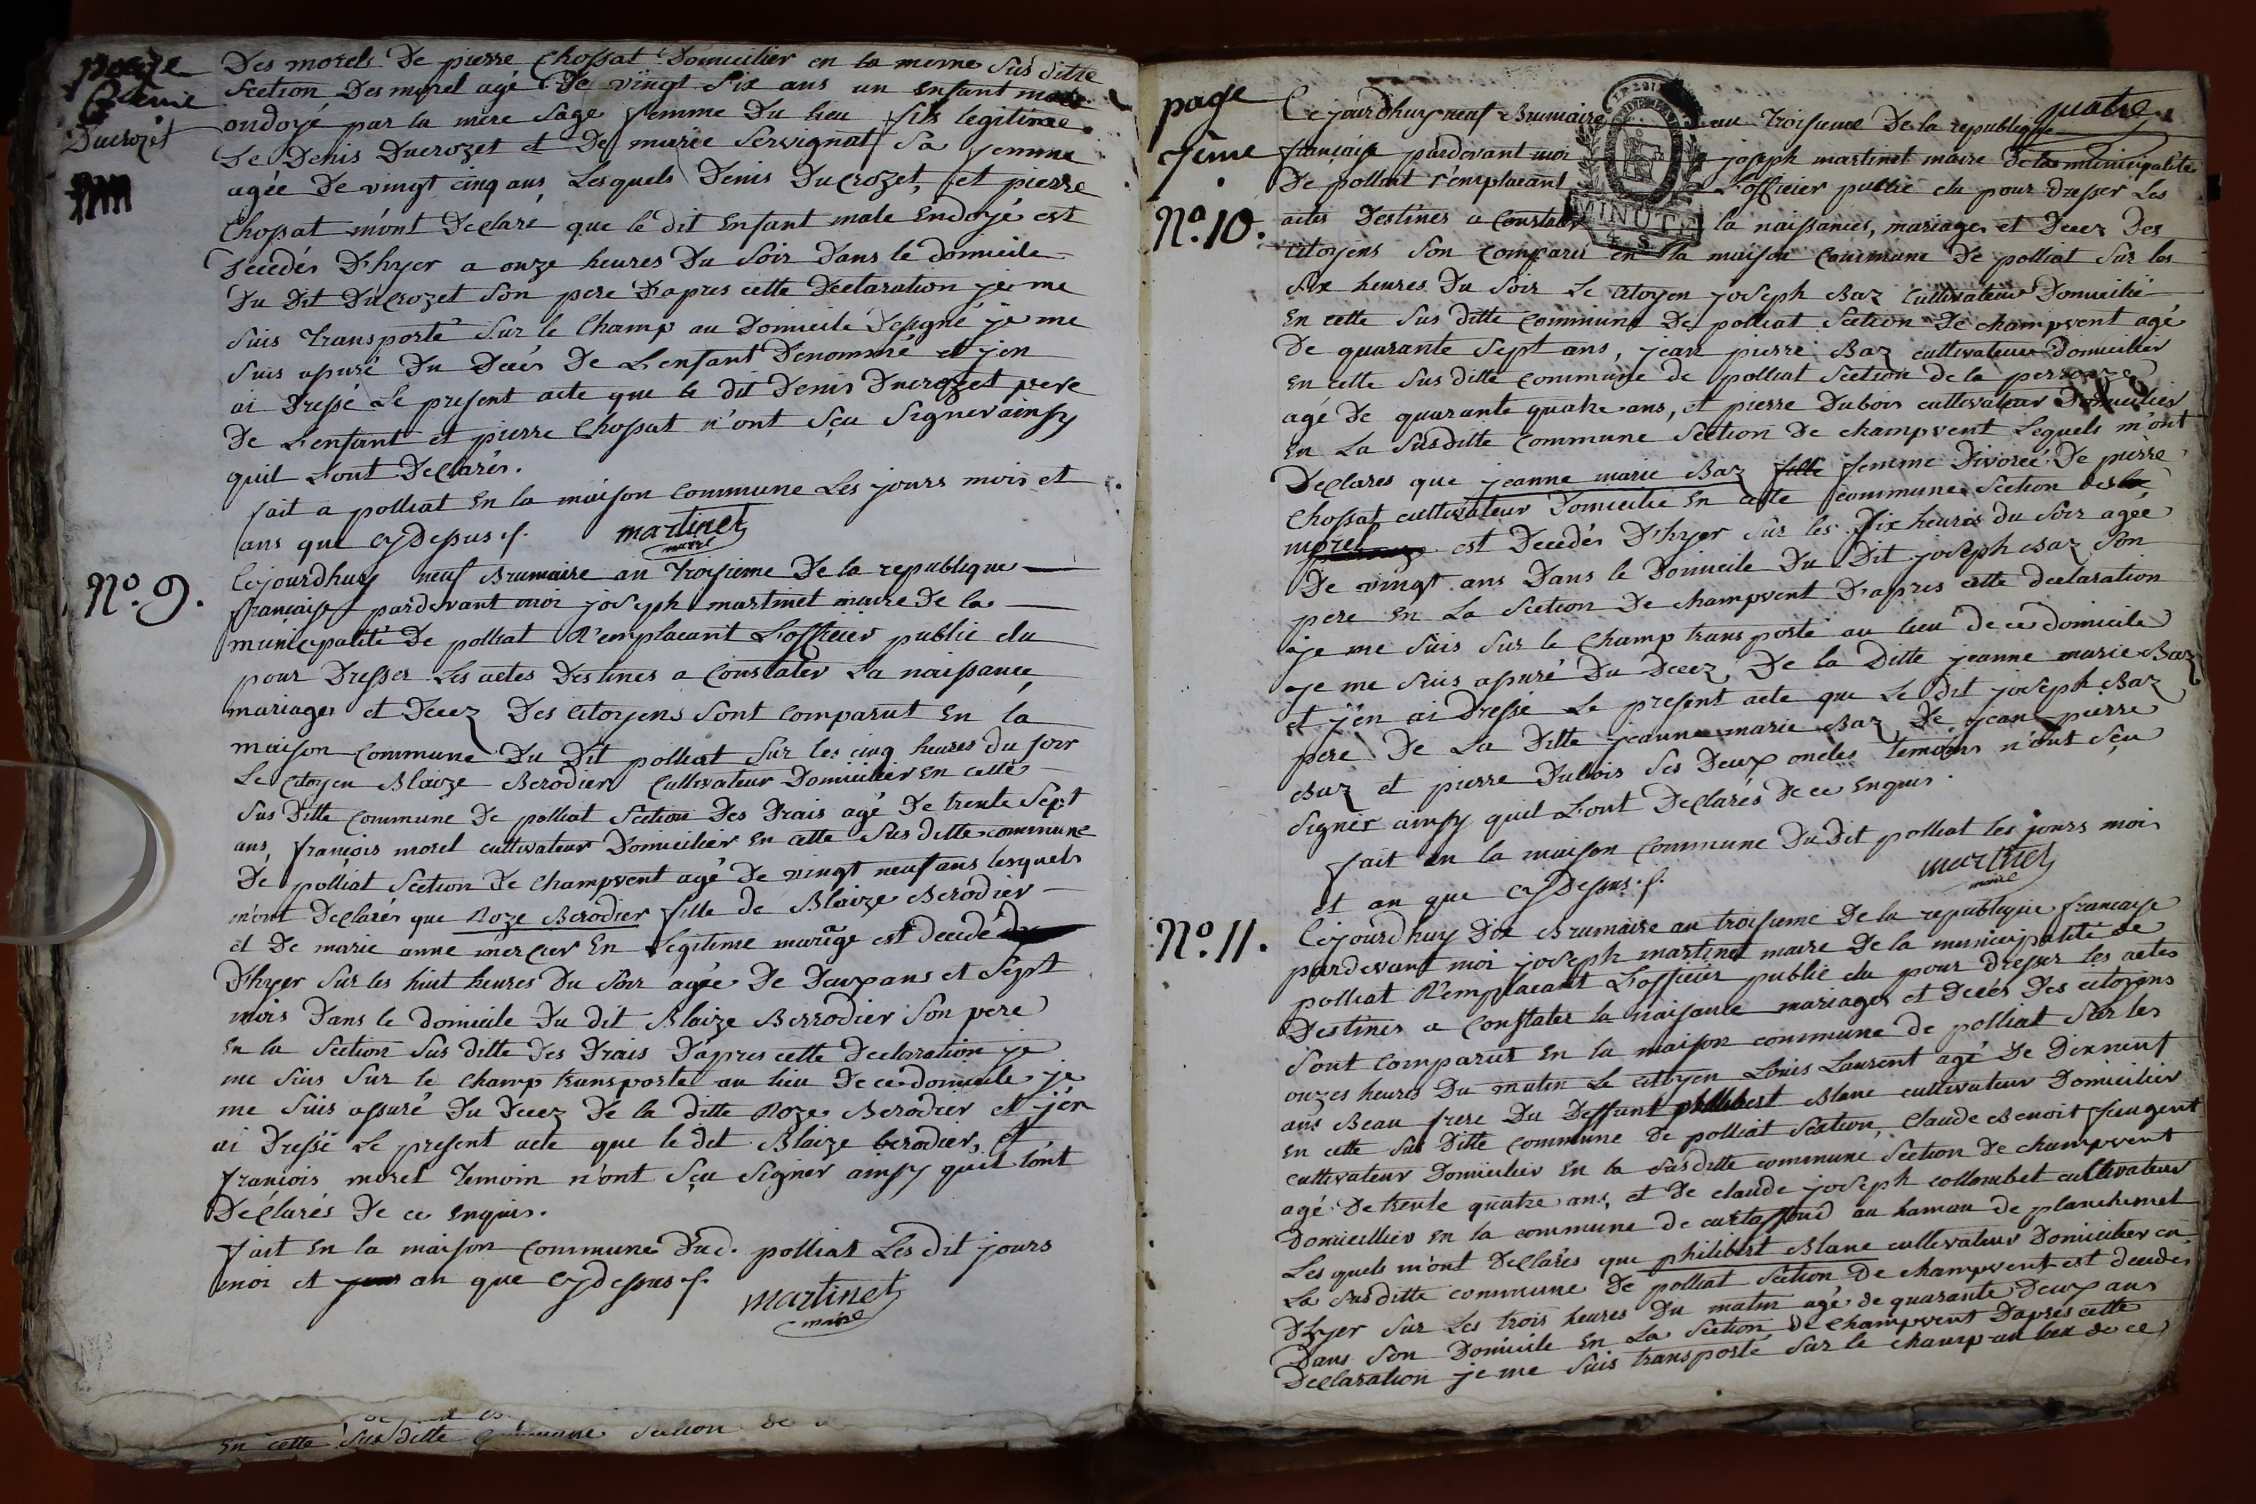 page
6eme
Ducrozet
Des morels De pierre Chossat Domicilier en la meme susditte
section Des morel agé De vingt six ans un Enfant male
ondoyé par la mere sage femme Du lieu fils legitime
De Denis Ducrozet et De marie Servignat sa femme
agée De vingt cinq ans Lesquels Denis Ducrozet, et pierre
Chossat m'ont Declaré que le dit Enfant male Endoyé est
Decedés D'hyer a onze heures Du soir Dans le domicile
Du Dit Ducrozet son pere D'apres cette Declaration je me
suis transporté sur le Champ au Domicile Designé je me
suis assuré Du Decés De L'enfant Denommé et j'en
ai Dressé Le present acte que le dit Denis Ducrozet pere
De L'enfant et pierre Chossat n'ont sçu signer ainsy
quil L'ont Declarés.
fait a polliat En la maison Commune Les jours mois et
ans que cy Dessus./.
martinet
maire
No. 9.
Cejourdhuy neuf Brumaire an troisieme De la republique
française pardevant moi joseph martinet maire De la
municipalité De polliat R'emplacant L'officier public elu
pour Dresser Les actes Destines a Constater La naissance
mariages et Decez Des Citoyens sont Comparut En la
maison Commune Du Dit polliat sur les cinq heures du soir
Le Citoyen Blaize Berodier Cultivateur Domicilier En cette
sus Ditte Commune De polliat section Des Drais agé De trente sept
ans, françois morel cultivateur Domicilier En cette sus ditte commune
De polliat section De Champvent agé De vingt neuf ans lesquels
m'ont Declarés que Roze Berodier fille de Blaize Berodier
et De marie anne mercier En Legitime mariage est decedé
D'hyer sur les huit heures Du soir agée De Deux ans et sept
mois Dans le domicile Du dit Blaize Berrodier son pere
En la section sus ditte Des Drais D'apres cette Declaration je
me suis sur le Champ transporté au lieu De ce domicile je
me suis assuré Du Decez De la ditte Roze Berodier et j'en
ai Dressé Le present acte que le dit Blaize berodier, et
françois morel temoin n'ont sçu signer ainsy quil l'ont
Déclarés De ce Enquis.
fait En la maison Commune Dud. polliat Les dit jours
moi et an que cy dessus./.
martinet
maire
En cette sus ditte Commune section de
page
7eme
quatre
No. 10.
Cejourdhuy neuf Brumaire an troisieme De la republique
française pardevant moi joseph martinet maire De la municipalité
De polliat r'emplacant L'officier public elu pour Dresser Les
actes Destines a Constater la naissances, mariages et Decez Des
MINUTE
Citoyens son comparu en la maison Commune De polliat sur les
six heures Du soir Le Citoyen joseph Baz Cultivateur Domicilié
En cette sus ditte Commune De polliat section De champvent agé
De quarante sept ans, jean pierre Baz cultivateur Domicilier
En cette sus ditte commune de polliat section de la
agé De quarante quatre ans, et pierre Dubois cultivateur Domicilier
En La susditte Commune section De champvent Lequels m'ont
Declares que jeanne marie Baz fille femme Divorcé De pierre
Chossat cultivateur Domicilié En cette commune section des
morel est Decedés D'hyer sur les Dix heures du soir agée
De vingt ans Dans le Domicile Du Dit joseph Baz son
pere En La section De champvent D'apres cette declaration
je me suis sur le Champ transporté au lieu de ce domicile
je me suis assuré Du Decez De la Ditte jeanne marie Baz
et j'en ai Dressé Le present acte que Le dit joseph Baz
pere De La Ditte jeanne marie Baz De jean pierre
Baz et pierre Dubois ses Deux oncles temoins n'ont sçu
signer ainsy quil L'ont Declarés De ce Enquis.
fait En la maison Commune Du Dit polliat les jours moi
et an que cy Dessus./.
martinet
maire
No. 11.
Cejourdhuy Dix Brumaire an troisieme De la republique française
pardevant moi joseph martinet maire De la municipalité de
polliat R'emplacant L'officier public elu pour dresser les actes
Destines a Constater la naisante mariages et Decés Des citoyens
sont Comparut En la maison commune de polliat sur les
onzes heures Du matin Le citoyen Louis Laurent agé De Dixneuf
ans Beau frere Du Deffunt philibert Blanc cultivateur Domicilier
En cette sus Ditte Commune De polliat section, Claude Benoit
cultivateur Domicilier En la susditte commune section De champvent
agé De trente quatre ans, et De claude joseph collombet cultivateur
Domicillier En la commune de curtaffond au hamau de planchemel
Les quels m'ont Declarés que philibert Blanc cultivateur Domicilier en
La susditte commune De polliat section De champvent est decedés
D'hyer sur Les trois heures Du matin agé de quarante Deux ans
Dans son Domicile En La section De champvent D'apres cette
Declaration je me suis transporté sur le champ au lieu de ce